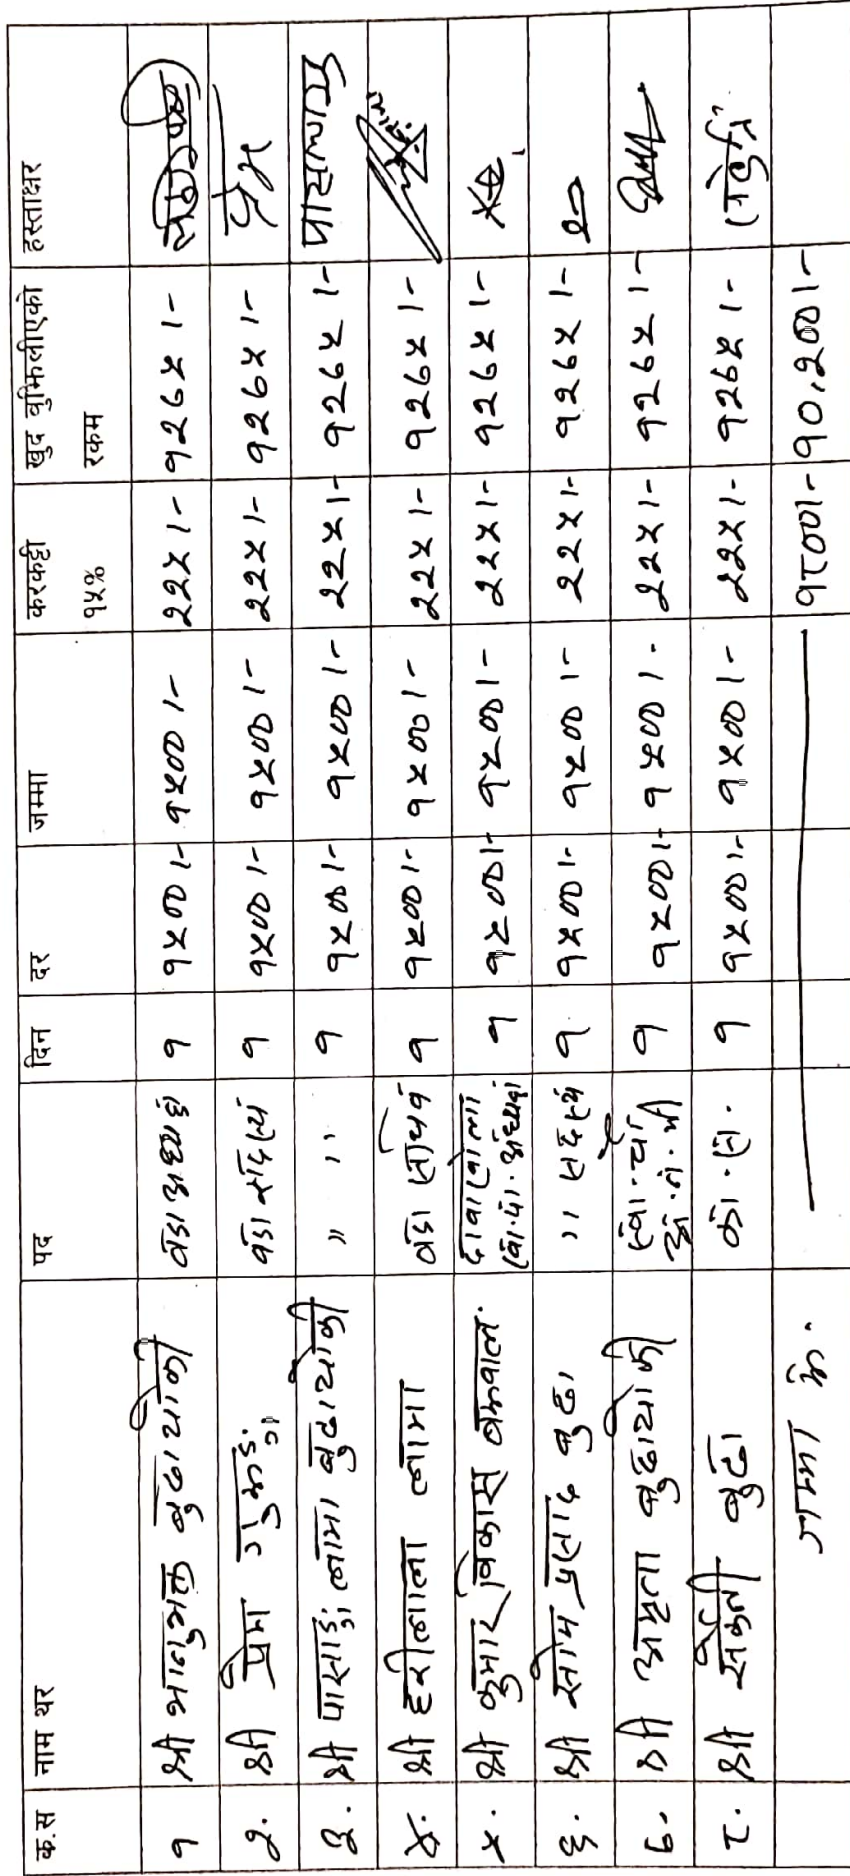 क.स नाम थर पद दिन दर जम्मा करकट्टी १५% खुद बुझिलीएको रकम हस्ताक्षर
१ श्री भानुभक्त बुढाथोकी वडा अध्यक्ष १ १५००।- १५००।- २२५।- १२७५।-
२. श्री प्रेम गुरुङ्ग वडा सदस्य १ १५००।- १५००।- २२५।- १२७५।- प्रेम
३. श्री पासाङ्ग लामा बुढाथोकी " " १ १५००।- १५००।- २२५।- १२७५।-
४. श्री हरीलाला लामा वडा सचिव १ १५००।- १५००।- २२५।- १२७५।-
५. श्री कुमार विकास १ १५००।- १५००।- २२५।- १२७५।-
६. श्री सोम प्रसाद बुढा " सदस्य १ १५००।- १५००।- २२५।- १२७५।-
७. श्री अमृता बुढाथोकी १ १५००।- १५००।- २२५।- १२७५।-
८. श्री बुढा का.स. १ १५००।- १५००।- २२५।- १२७५।-
जम्मा रु. १८००।- १०,२००।-